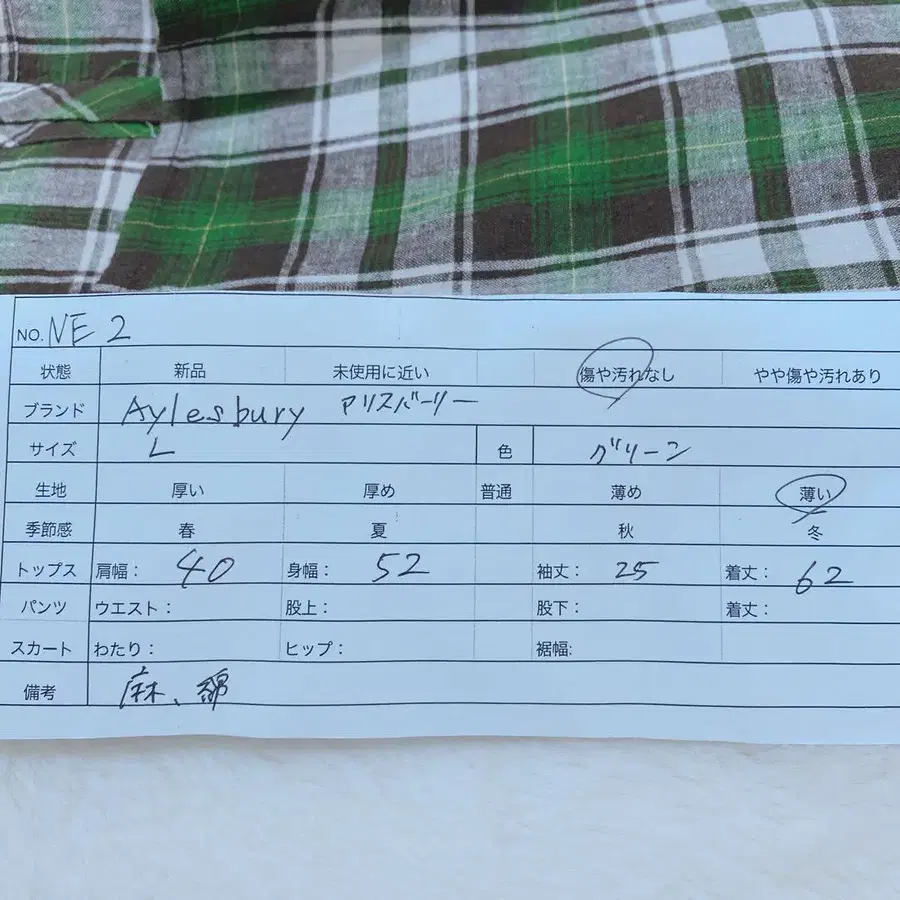 NO. NE 2
状態 新品 未使用に近い 傷や汚れなし やや傷や汚れあり
ブランド Aylesbury アリスバーリー
サイズ L 色 グリーン
生地 厚い 厚め 普通 薄め 薄い
季節感 春 夏 秋 冬
トップス 肩幅： 40 身幅： 52 袖丈： 25 着丈： 62
パンツ ウエスト： 股上： 股下： 着丈：
スカート わたり： ヒップ： 裾幅:
備考 麻、綿